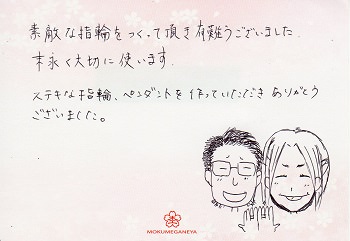 素敵な指輪をつくって頂き有難うございました.
末永く大切に使います.
ステキな指輪、ペンダントを作っていただき ありがとう
ございました。
MOKUMEGANEYA